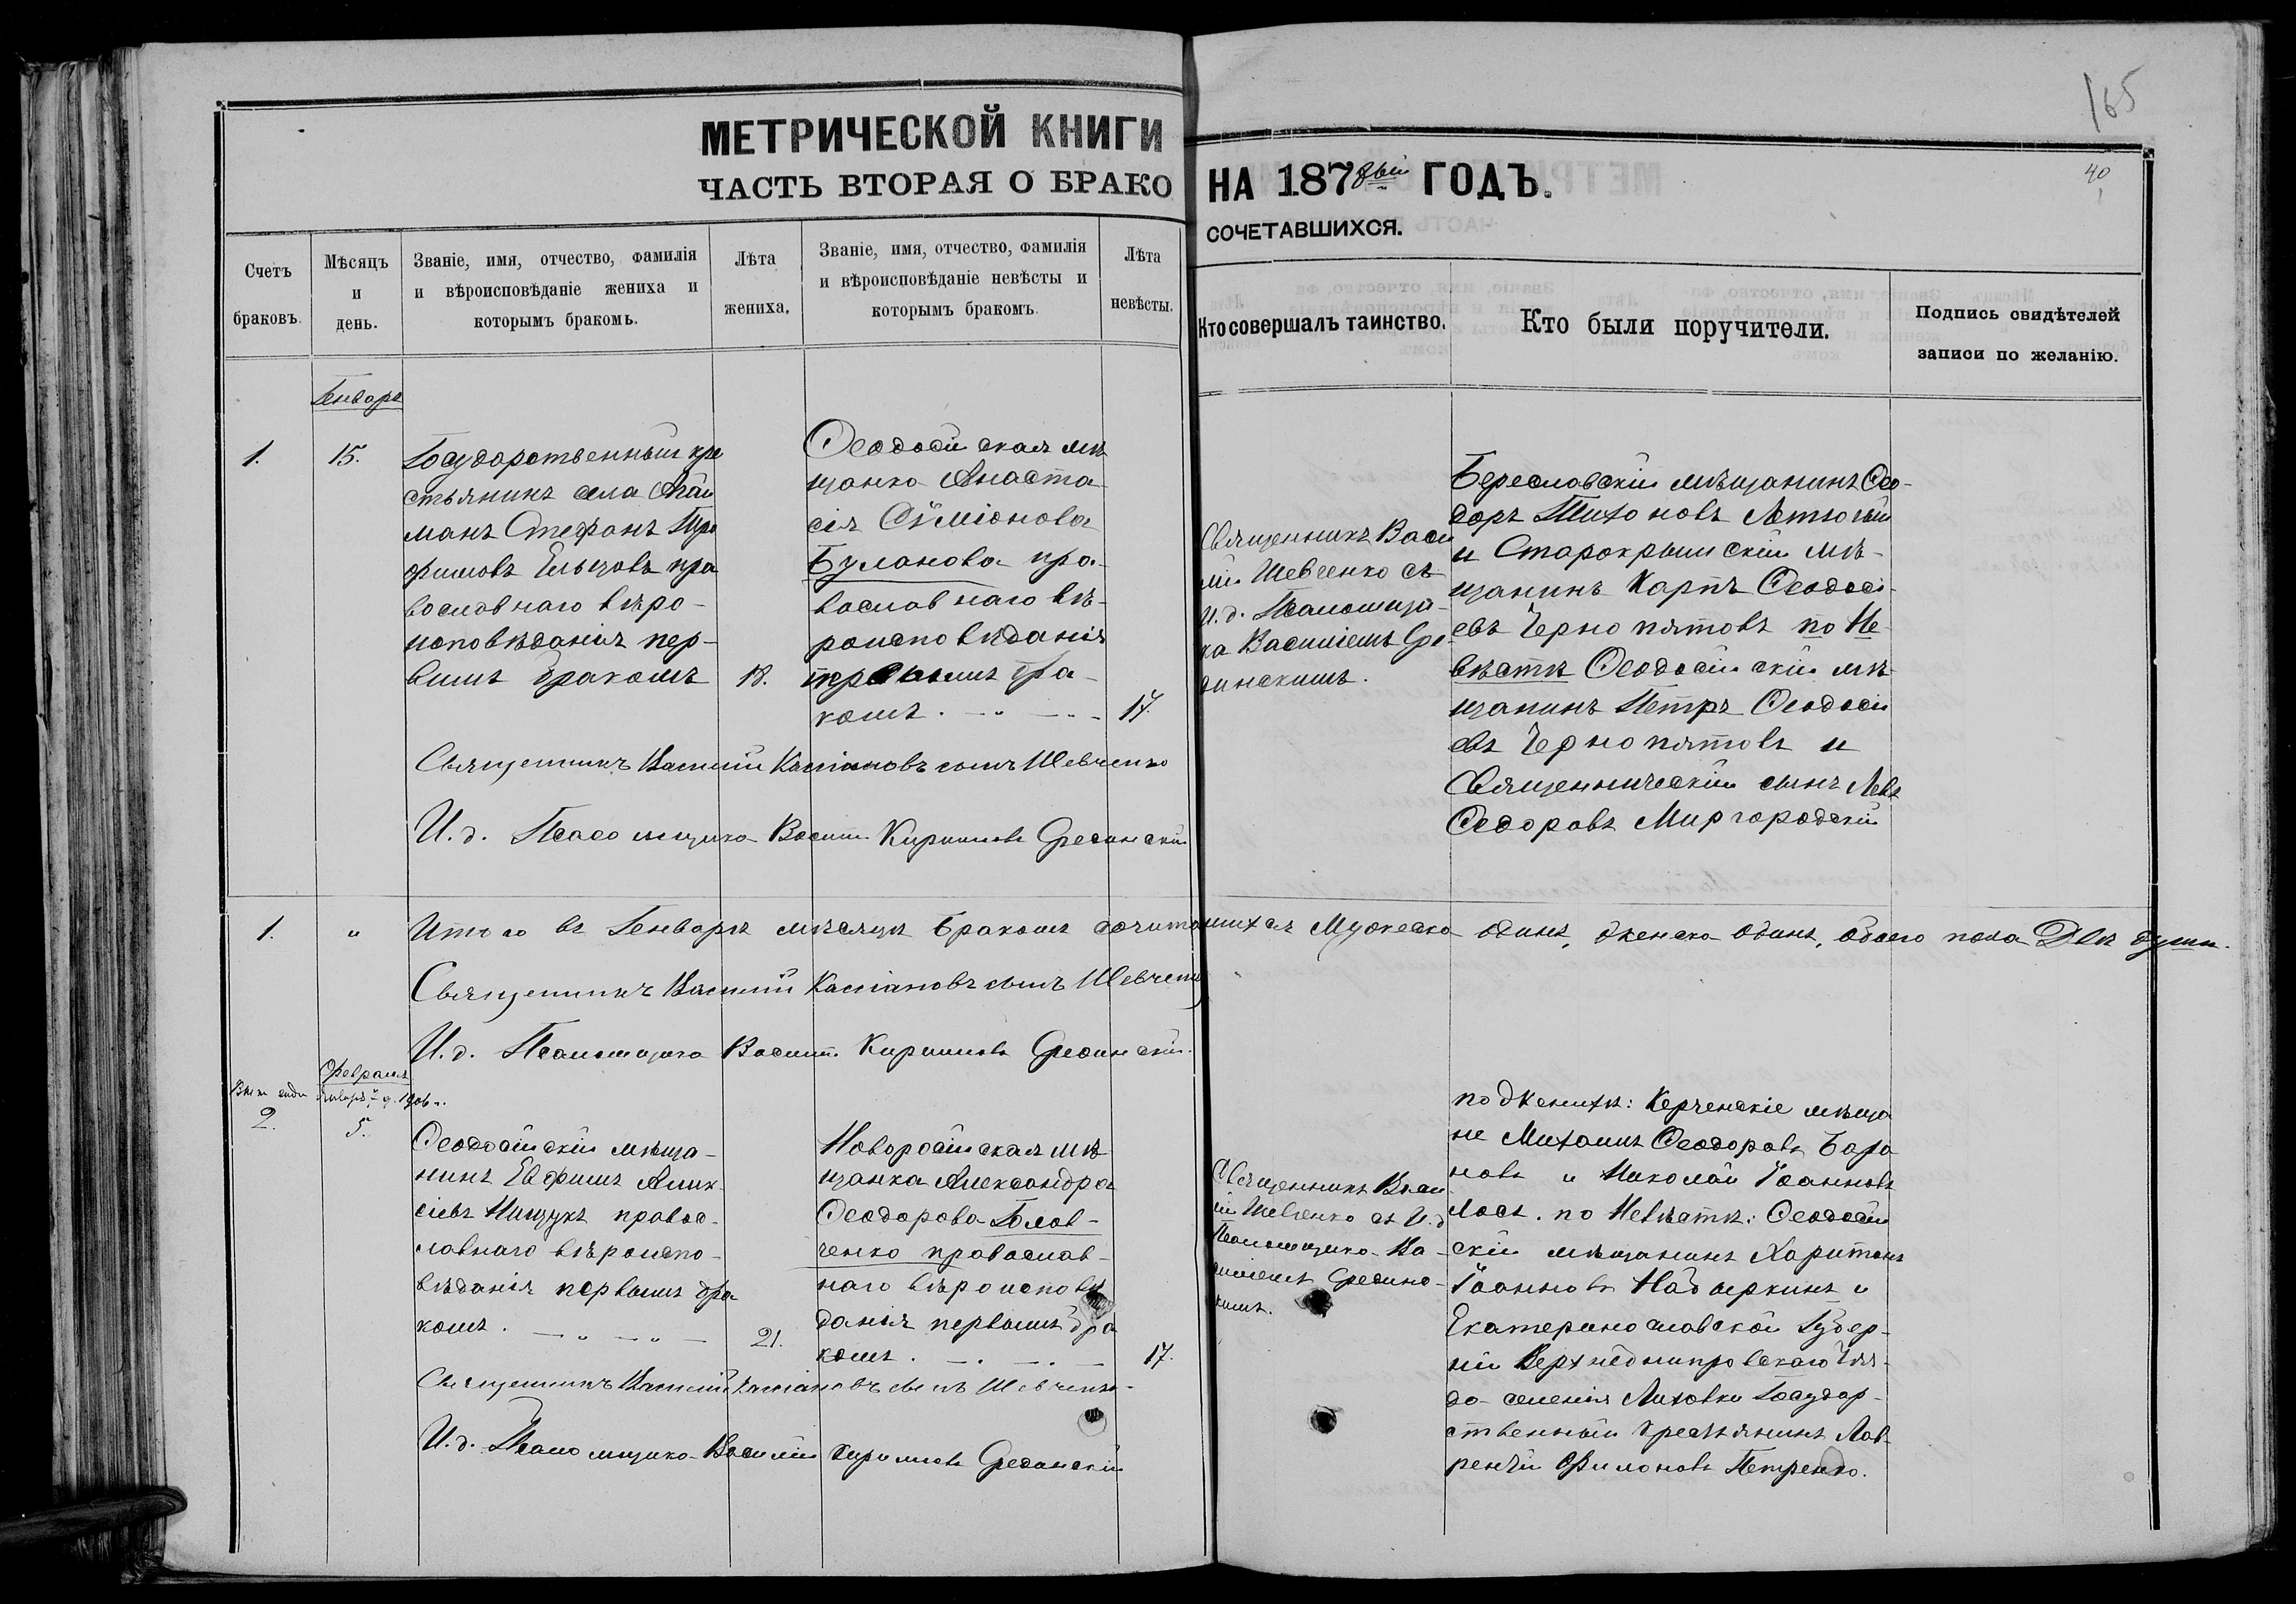 165
40
МЕТРИЧЕСКОЙ КНИГИ
НА 1878ый ГОДЪ.
ЧАСТЬ ВТОРАЯ О БРАКО
СОЧЕТАВШИХСЯ.
Счетъ
браковъ.
Мѣсяцъ
и
день.
Званіе, имя, отчество, фамилія
и вѣроисповѣданіе жениха и
которымъ бракомъ.
Лѣта
жениха.
Званіе, имя, отчество, фамилія
и вѣроисповѣданіе невѣсты и
которымъ бракомъ.
Лѣта
невѣсты.
Кто совершалъ таинство.
Кто были поручители.
Подпись свидѣтелей
записи по желанію.
Генваря
1.
15.
Государственный кре
стьянинъ села
манъ Стефанъ
Ельцовъ пра
вославнаго вѣро-
исповѣданія пер-
вымъ бракомъ
18.
Ѳеодосійская мѣ
щанка Анаста
сія Сѵміонова
Буланова пра-
вославнаго вѣ-
роисповѣданія
первымъ бра-
комъ.
17.
Священникъ Васи
лій Шевченко съ
И. д. Псаломщи-
ка Василіемъ Гре-
динскимъ.
Бериславскій мѣщанинъ Ѳео-
доръ Тихоновъ
и Старокрымскій мѣ-
щанинъ Карпъ Ѳеодосі-
евъ Чернопятовъ по Не-
вѣстѣ Ѳеодосійскій мѣ-
щанинъ Петръ Ѳеодосі
евъ Чернопятовъ и
Священническій сынъ Левъ
Ѳедоровъ Миргородскій
Священникъ Василій Кассіановъ сынъ Шевченко
И. д. Псаломщика Васил. Кириловъ Грединскій
1.
"
Итого въ Генварѣ мѣсяцѣ бракомъ сочитавшихся Мужеска одинъ, женска одинъ, обоего пола Двѣ души.
Священникъ Василій Кассіановъ сынъ Шевченко
И. д. Псаломщика Васил. Кириловъ Грединскій.
Февраля
2.
5.
Ѳеодосійскій мѣща-
нинъ Евфимъ Алек-
сіевъ Нищукъ правос-
лавнаго вѣроиспо-
вѣданія первымъ бра
комъ.
21.
Новоросійская мѣ-
щанка Александра
Ѳеодорова Голов-
ченко православ-
наго вѣроисповѣ
данія первымъ бра
комъ.
17.
Священникъ Васи
лій Шевченко съ И. д
Псаломщика Ва-
силіемъ Грединс-
кимъ.
по Женихѣ: Керченскіе мѣща
не Михаилъ Ѳеодоровъ Бара
новъ и Николай Іоанновъ
Лось. по Невѣстѣ: Ѳеодосій
скій мѣщанинъ Харитонъ
Іоанновъ и
Екатеринославской Губер-
ніи Верхнеднипровскаго Уѣз-
да селенія Лиховки Государ-
ственный Крестьянинъ Лав-
рентій Филоновъ Петренко.
Священникъ Василій Кассіановъ сынъ Шевченко
И. д. Псаломщика Василій Кириловъ Грединскій